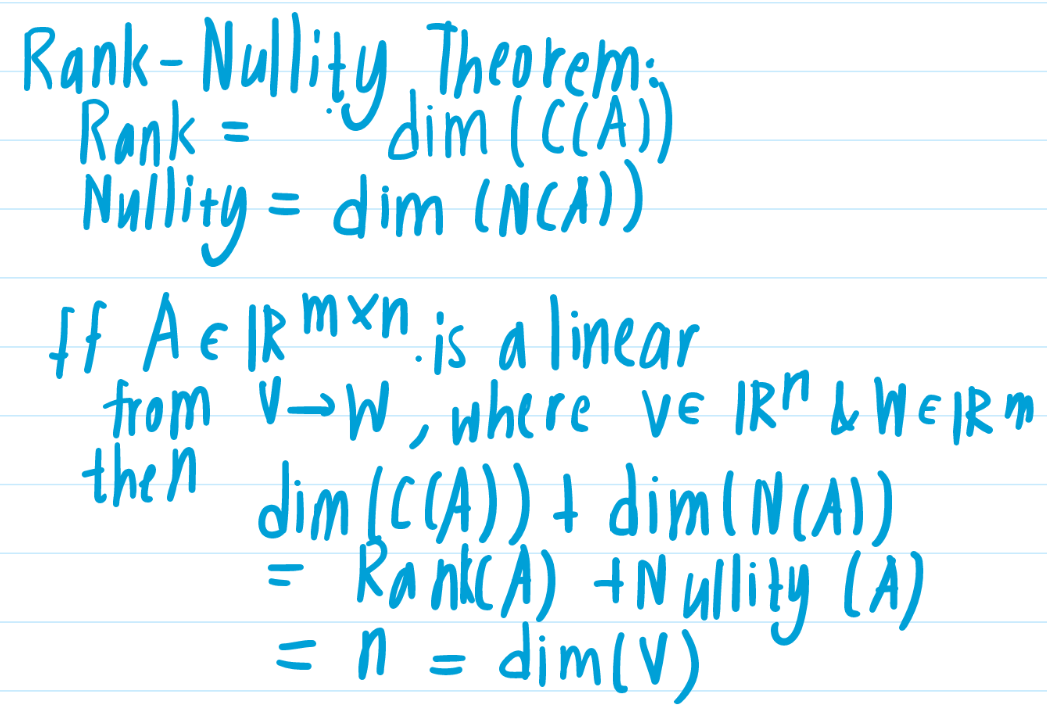 Rank-Nullity Theorem:
Rank = dim (C(A))
Nullity = dim (N(A))
If A ∈ ℝ^{m×n} is a linear
from V → W, where V ∈ ℝ^n & W ∈ ℝ^m
then
dim(C(A)) + dim(N(A))
= Rank(A) + Nullity (A)
= n = dim(V)